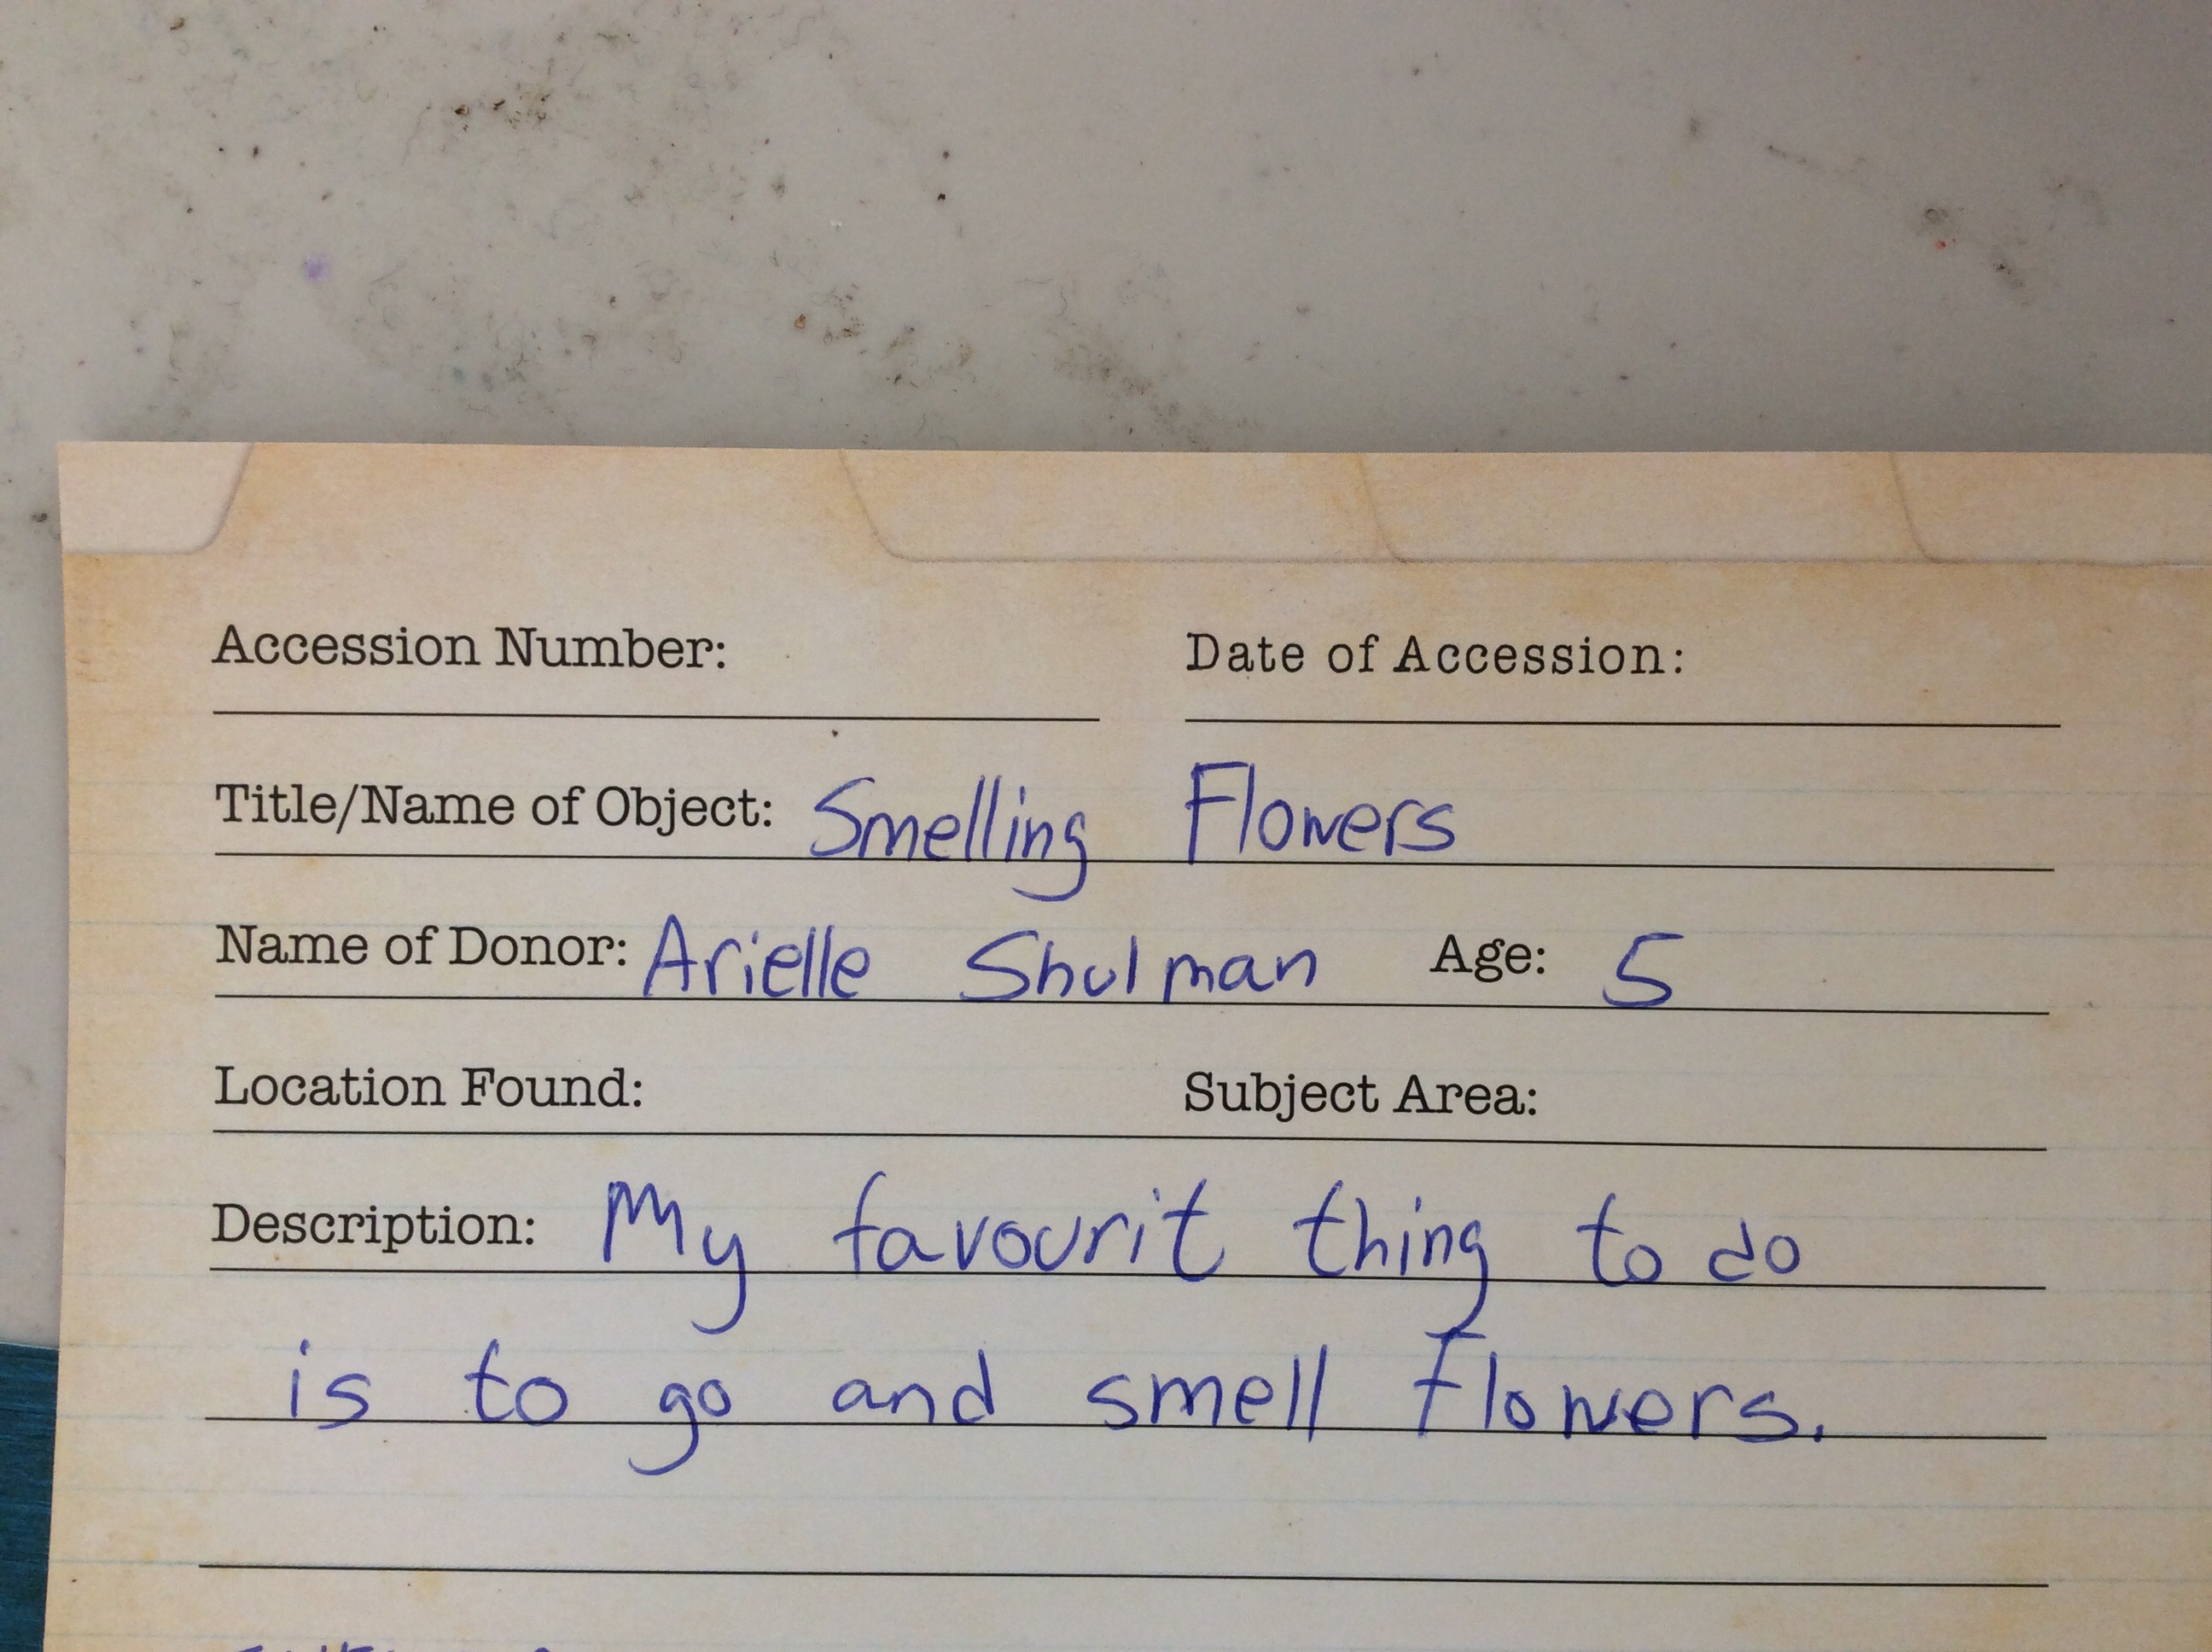 Accession Number: Date of Accession:
Title/Name of Object: Smelling Flowers
Name of Donor: Arielle Shulman Age: 5
Location Found: Subject Area:
Description: My favourit thing to do
is to go and smell flowers.